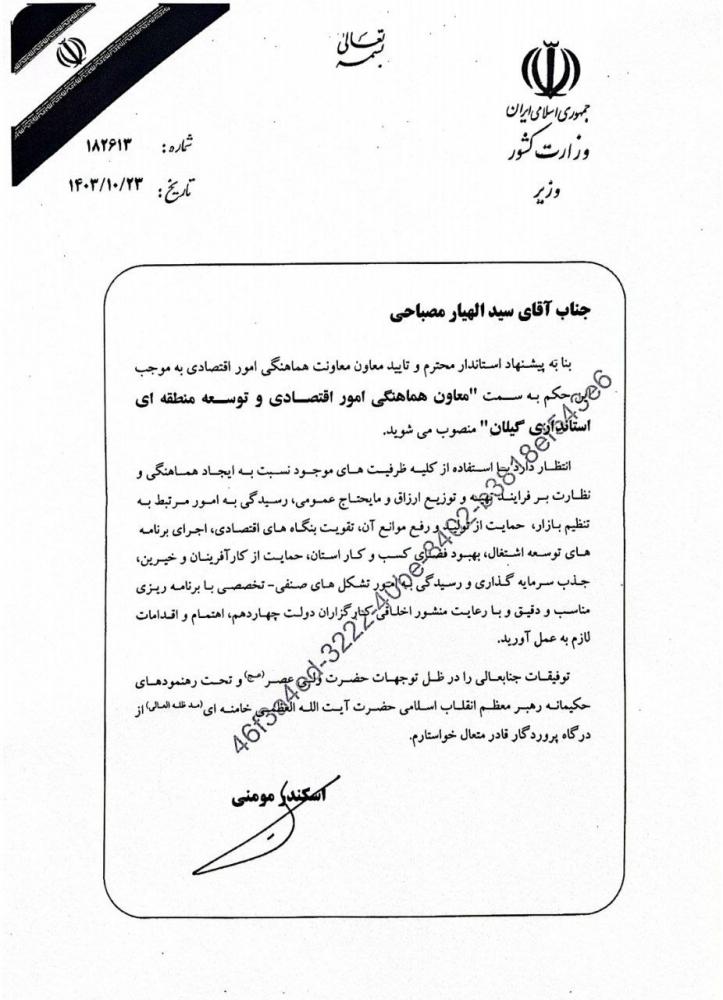 بسمه تعالی
جمهوری اسلامی ایران
وزارت کشور
وزیر
شماره: ۱۸۲۶۱۳
تاریخ: ۱۴۰۳/۱۰/۲۳
جناب آقای سید الهیار مصباحی
بنا به پیشنهاد استاندار محترم و تایید معاون معاونت هماهنگی امور اقتصادی به موجب
این حکم به سمت "معاون هماهنگی امور اقتصادی و توسعه منطقه ای
استانداری گیلان" منصوب می شوید.
انتظار دارد با استفاده از کلیه ظرفیت های موجود نسبت به ایجاد هماهنگی و
نظارت بر فرایند تهیه و توزیع ارزاق و مایحتاج عمومی، رسیدگی به امور مرتبط به
تنظیم بازار، حمایت از تولید و رفع موانع آن، تقویت بنگاه های اقتصادی، اجرای برنامه
های توسعه اشتغال، بهبود فضای کسب و کار استان، حمایت از کارآفرینان و خیرین،
جذب سرمایه گذاری و رسیدگی به امور تشکل های صنفی- تخصصی با برنامه ریزی
مناسب و دقیق و با رعایت منشور اخلاقی کارگزاران دولت چهاردهم، اهتمام و اقدامات
لازم به عمل آورید.
توفیقات جنابعالی را در ظل توجهات حضرت ولی عصر (عج) و تحت رهنمودهای
حکیمانه رهبر معظم انقلاب اسلامی حضرت آیت الله العظمی خامنه ای (مد ظله العالی) از
درگاه پروردگار قادر متعال خواستارم.
اسکندر مومنی